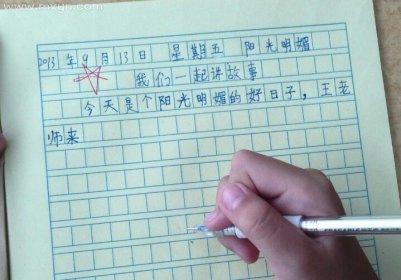 www.mxqn.com
2013年9月13日 星期五 阳光明媚
我们一起讲故事
今天是个阳光明媚的好日子，王老
师来